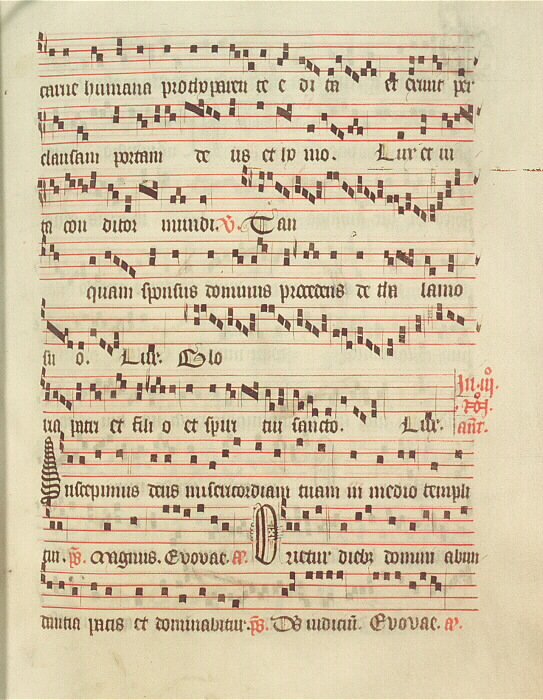 carne humana prothoparen te e di ta et exiuit per
clausam portam de us et ho mo. Lux et ui
ta con ditor mundi. V. Tan
quam sponsus dominus procedens de tha lamo
su o. Lux. Glo
ria patri et fili o et spiri tui sancto. Lux.
ant.
Suscepimus deus misericordiam tuam in medio templi
tui. ps. Magnus. Evovae. a. Orietur diebz domini abun
dantia pacis et dominabitur. ps. Ds iudiciū. Evovae. a.